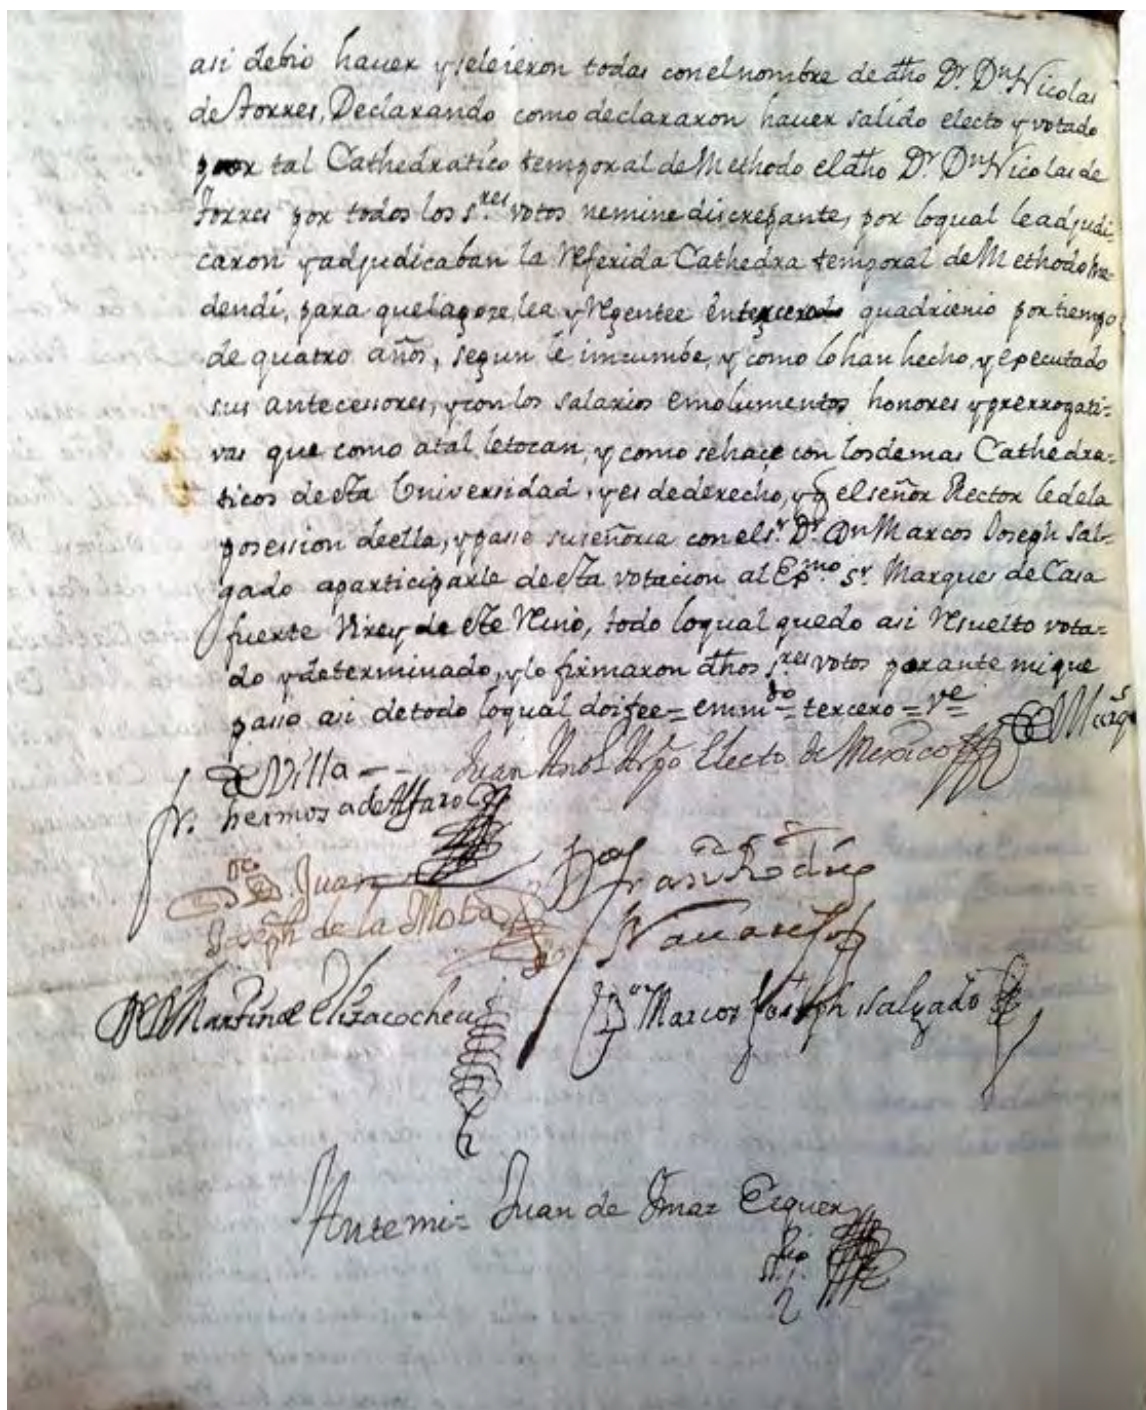 asi debio haver y seleieron todas con el nombre de dho Dr. Dn Nicolas
de Torres, Declarando como declararon haver salido electo y votado
por tal Cathedratico temporal de Methodo el dho Dr. Dn Nicolas de
Torres por todos los s.res votos nemine discrepante, por loqual le adjudi-
caron y adjudicaban la Referida Cathedra temporal de Methodo me-
dendi, para que la goze, lea y Regentee en tercero quadrienio por tiempo
de quatro años, segun le imcumbe, y como lo han hecho, y executado
sus antecessores, y con los salarios emolumentos honores y prerrogati-
vas que como atal le tocan, y como se haçe con los demas Cathedra-
ticos de esta Universidad, y es de derecho, y q el señor Rector le de la
posession de ella, y passe su señoria con el s.r Dr. Dn Marcos Joseph Sal-
gado a participarle de esta votacion al Exmo Sr. Marques de Casa
fuerte Virrey de este Reino, todo loqual quedo asi Resuelto vota-
do y determinado, y lo firmaron dhos s.res votos por ante mi que
passo asi de todo loqual doi fee = emmdo = tercero = ve =
Villa --
Juan Electo de Mexico
hermosa de Alfaro
Juan
Joseph de la Mota
Fran Rodrig
Navarijo
Martin de Elizacochea
Dor Marcos Joseph Salgado
Ante mi = Juan de Imaz Esquer